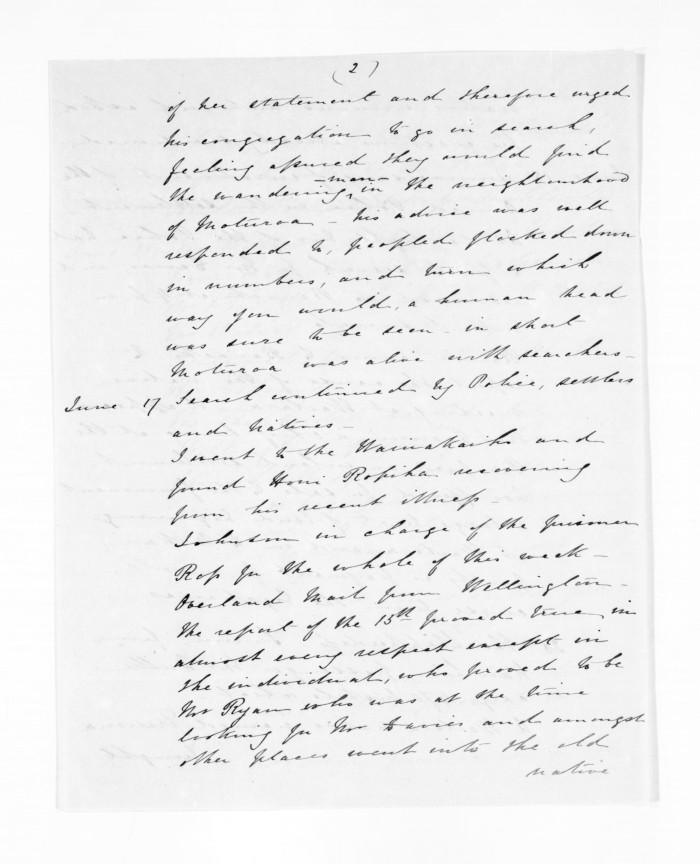 (2)
of her statement and therefore urged
his congregation to go in search,
feeling assured they would find
the wandering man in the neighbourhood
of Moturoa - his advice was well
responded to, peopled flocked down
in numbers, and turn which
way you would, a human head
was sure to be seen - in short
Moturoa was alive with searchers -
June 17 Search continued by Police, settlers
and Natives -
I went to the Waiwakaiho and
found Honi Ropiha recovering
from his recent illness -
Johnson in charge of the prisoner
Ross for the whole of this week -
Overland Mail from Wellington -
The report of the 15th proved true in
almost every respect except in
the individual, who proved to be
Mr Ryan who was at the time
looking for Mr Davies and amongst
other places went into the old
native